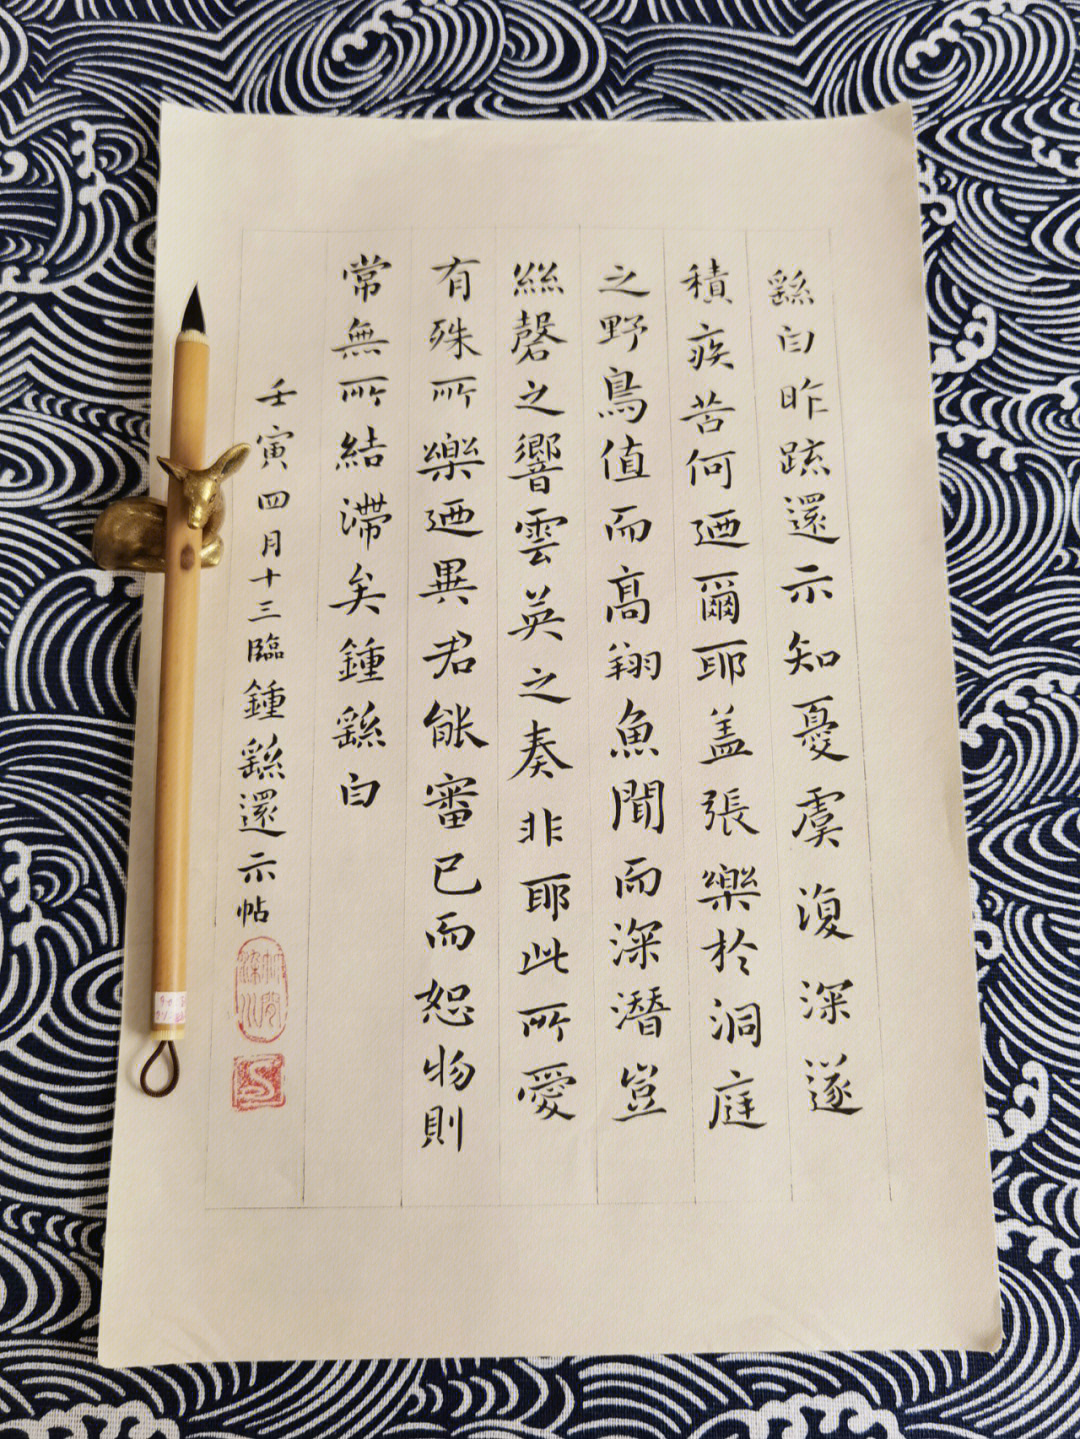 繇白昨疏還示知憂虞復深遂
積疾苦何迺爾耶盖張樂於洞庭
之野鳥值而高翔魚聞而深潛豈
絲磬之響雲英之奏非耶此所愛
有殊所樂迺異君能審己而恕物則
常無所結滯矣鍾繇白
壬寅四月十三臨鍾繇還示帖